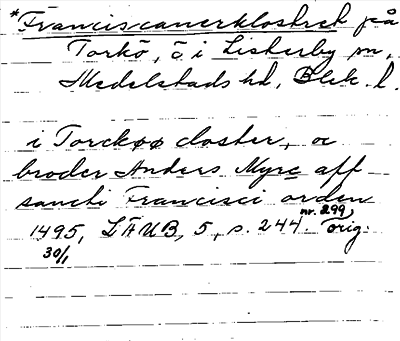 *Franciscanerklostret på
Torkö, ö i Listerby sn,
Medelstads hd, Blek. l.
i Torckøø closter, oc
broder Anders Myre aff
sancti Francisci orden
1495, LÄUB, 5, s. 244. nr. 299, orig.
30/1